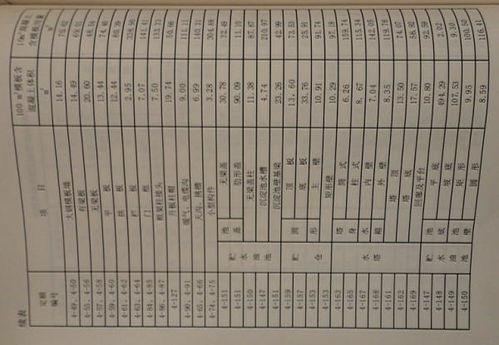 续表
定额编号 项目 100 m²模板含混凝土体积 10m³混凝土含模板面积
4-49、4-50 大钢模板墙 14.16 70.62
4-55、4-56 有梁板 14.49 69.01
4-57、4-58 无梁板 20.60 48.54
4-59、4-60 平板 13.44 74.40
4-61、4-62 拱板 12.44 80.39
4-63、4-64 栏板 2.95 338.98
4-84、4-85 门框 7.07 141.41
4-86、4-87 框架柱接头 7.50 133.33
4-127 升板柱帽 19.74 50.66
4-90、4-91 暖气、电缆沟 9.00 111.11
4-65、4-66 天沟、挑檐 6.99
4-74、4-75 小型构件 3.28 304.88
贮水油池 池盖
4-151 无梁盖 30.78 32.49
4-151 肋形盖 90.09 11.10
4-150 无梁盖柱 11.38 87.87
4-147 沉淀池水槽 4.74 210.97
4-151 沉淀池壁基梁 23.26 42.99
贮仓 圆形
4-159 顶板 13.60 73.53
4-157 底板 33.76
4-153 主壁 10.91
4-153 矩形壁 10.29 97.18
水塔
塔身
4-163 筒式 6.26 159.74
4-165 柱式 8.67 115.34
水箱
4-167 内壁 7.04 142.05
4-168 外壁 8.35 119.76
4-161 塔顶 13.50 74.07
4-162 塔底 17.57 56.92
4-169 回廊及平台 10.80 92.59
贮水油池
池底
4-147 平底 494.29 2.02
4-148 坡底 107.53 9.30
池壁
4-149 矩形 9.95 100.50
4-150 圆形 8.59 116.41